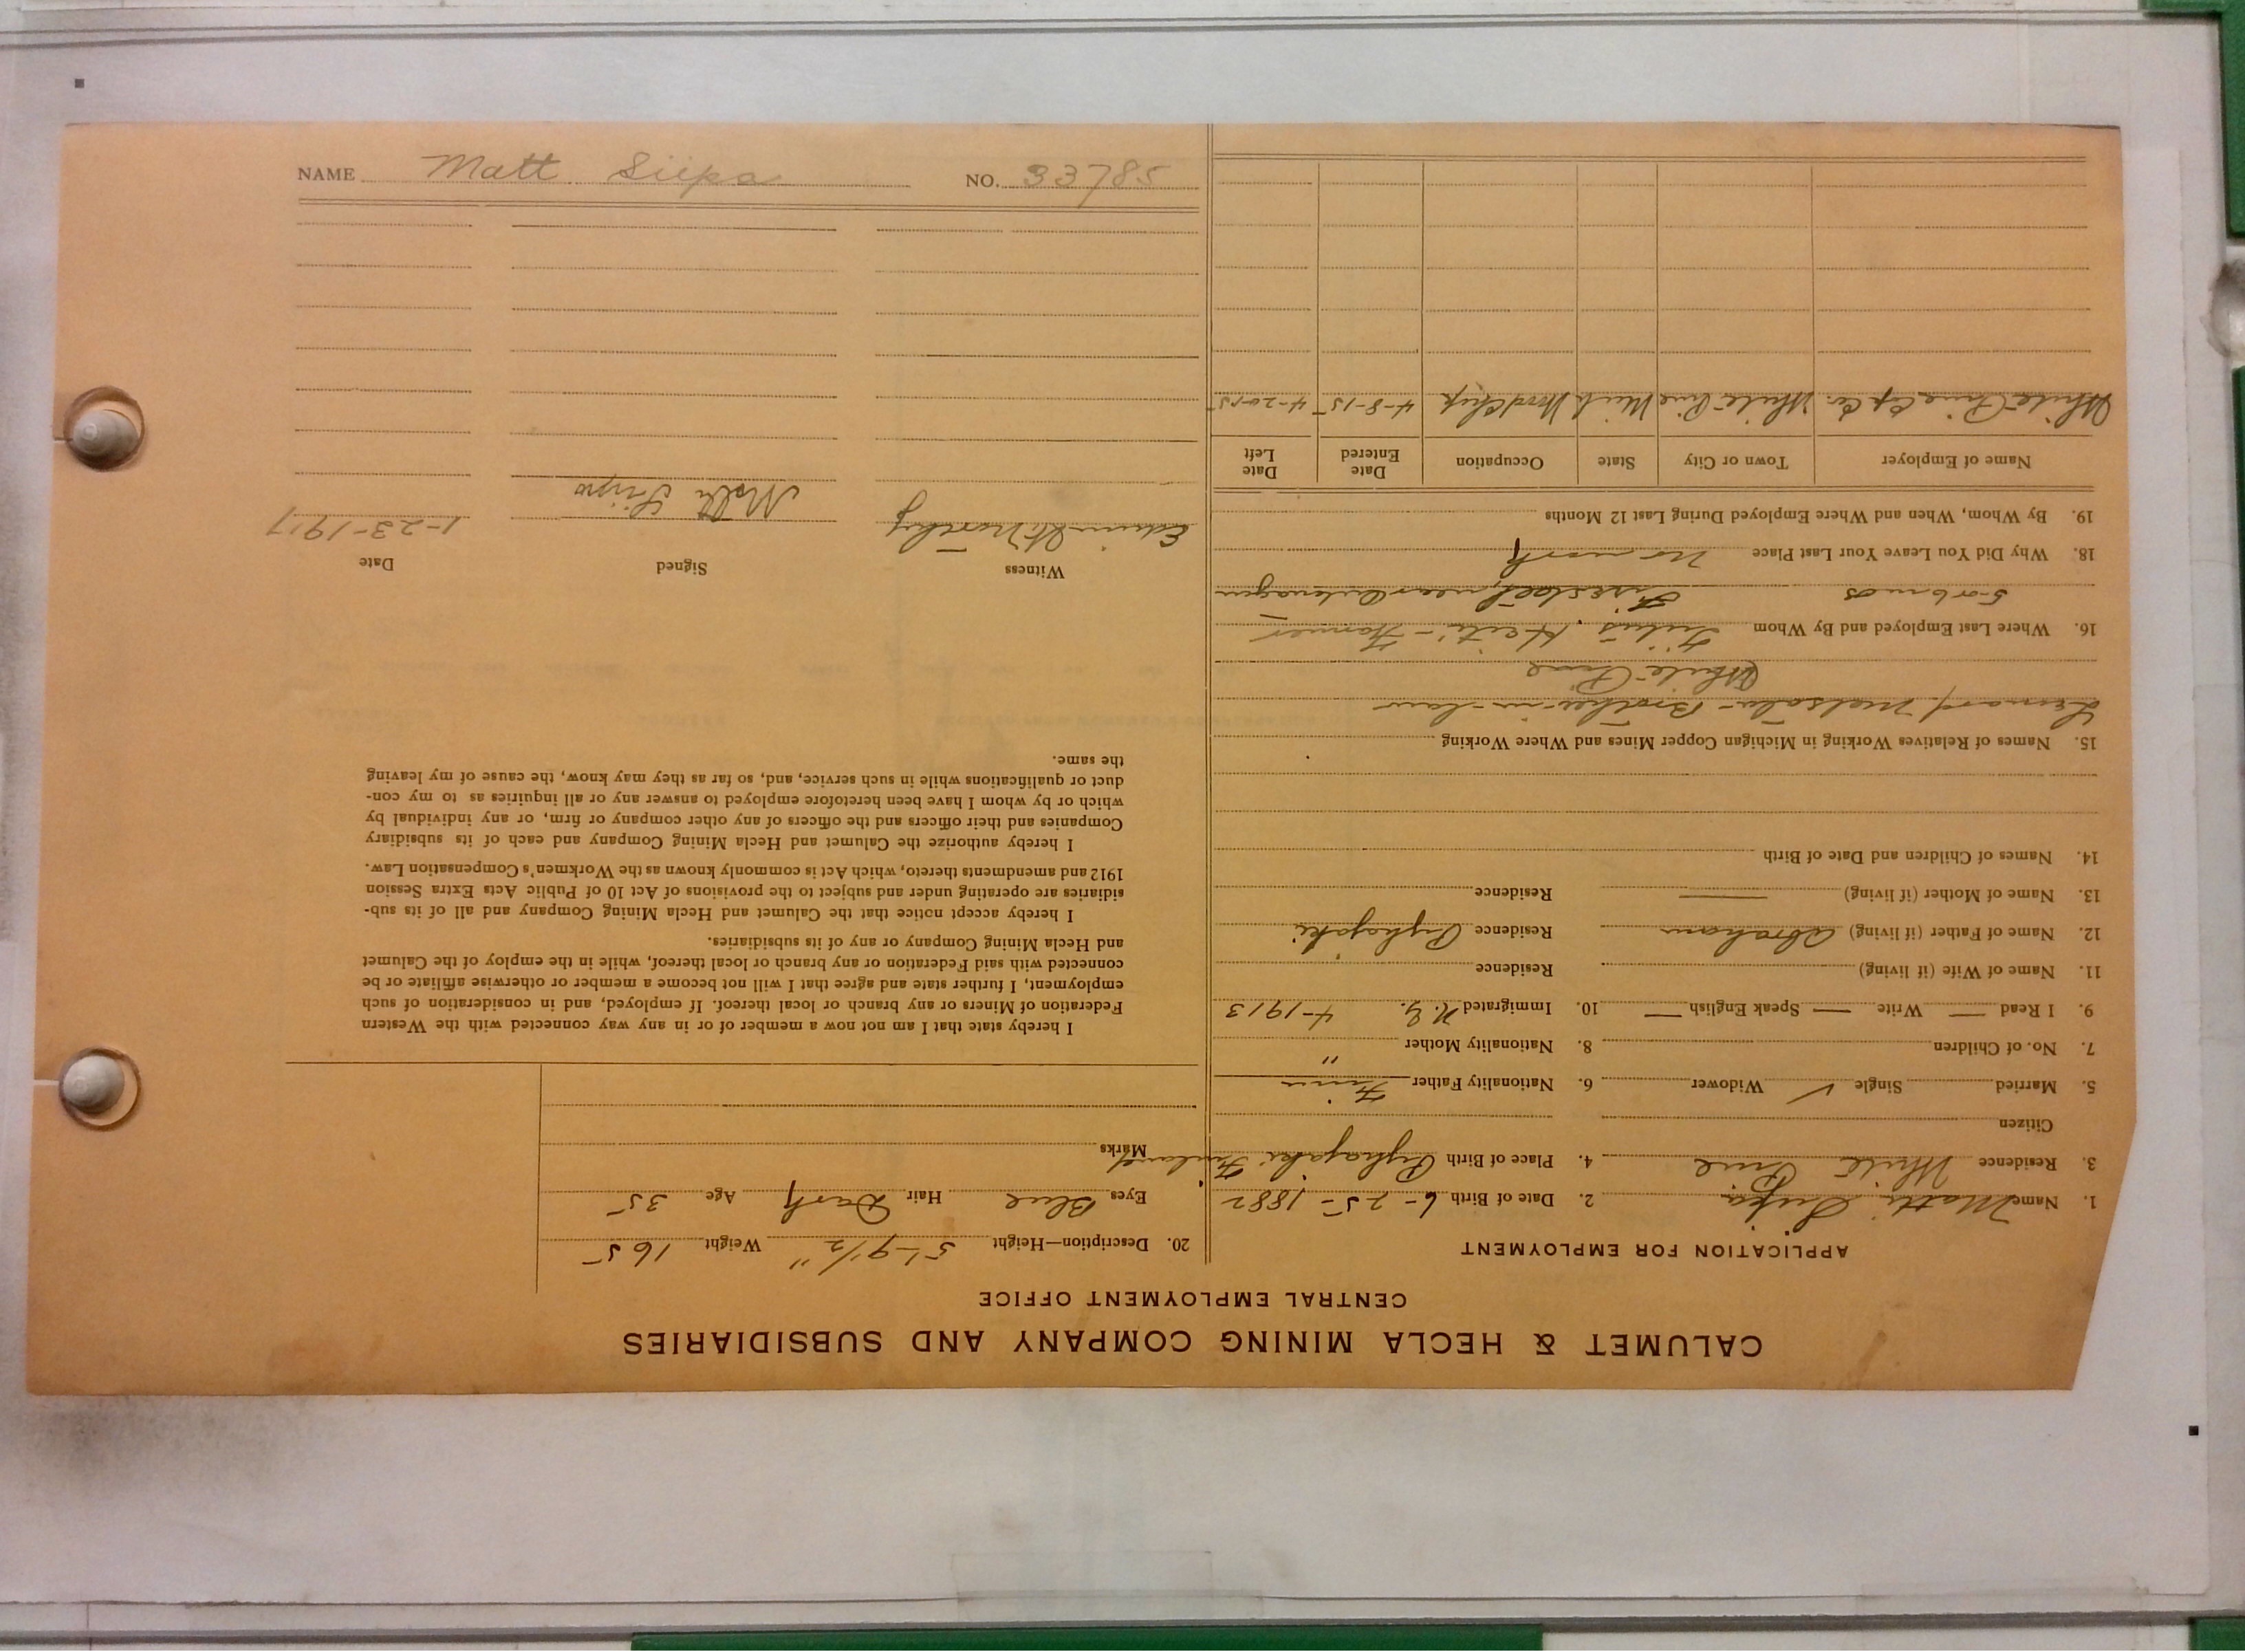 CALUMET & HECLA MINING COMPANY AND SUBSIDIARIES
CENTRAL EMPLOYMENT OFFICE
APPLICATION FOR EMPLOYMENT
1. Name Matti Siipa 2. Date of Birth 6-25-1882
3. Residence White Pine 4. Place of Birth Pyhajoki Finland
Citizen
5. Married Single ✓ Widower 6. Nationality Father Finn
7. No. of Children 8. Nationality Mother "
9. I Read — Write — Speak English — 10. Immigrated N.Y. 4-1913
11. Name of Wife (if living) Residence
12. Name of Father (if living) Abraham Residence Pyhajoki
13. Name of Mother (if living) — Residence
14. Names of Children and Date of Birth
15. Names of Relatives Working in Michigan Copper Mines and Where Working
Brother-in-law
White Pine
16. Where Last Employed and By Whom Julius Heiti - Farmer
5 or 6 mos near
18. Why Did You Leave Your Last Place no work
19. By Whom, When and Where Employed During Last 12 Months
Name of Employer Town or City State Occupation Date Entered Date Left
White Pine Cop Co. White Pine Mich Wood Chop 4-8-15 4-20-15
20. Description—Height 5'-9 1/2" Weight 165
Eyes Blue Hair Dark Age 35
Marks
I hereby state that I am not now a member of or in any way connected with the Western
Federation of Miners or any branch or local thereof. If employed, and in consideration of such
employment, I further state and agree that I will not become a member or otherwise affiliate or be
connected with said Federation or any branch or local thereof, while in the employ of the Calumet
and Hecla Mining Company or any of its subsidiaries.
I hereby accept notice that the Calumet and Hecla Mining Company and all of its sub-
sidiaries are operating under and subject to the provisions of Act 10 of Public Acts Extra Session
1912 and amendments thereto, which Act is commonly known as the Workmen's Compensation Law.
I hereby authorize the Calumet and Hecla Mining Company and each of its subsidiary
Companies and their officers and the officers of any other company or firm, or any individual by
which or by whom I have been heretofore employed to answer any or all inquiries as to my con-
duct or qualifications while in such service, and, so far as they may know, the cause of my leaving
the same.
Witness Signed Date
Edwin Matti Siipa 1-23-1917
NAME Matt Siipa NO. 33785